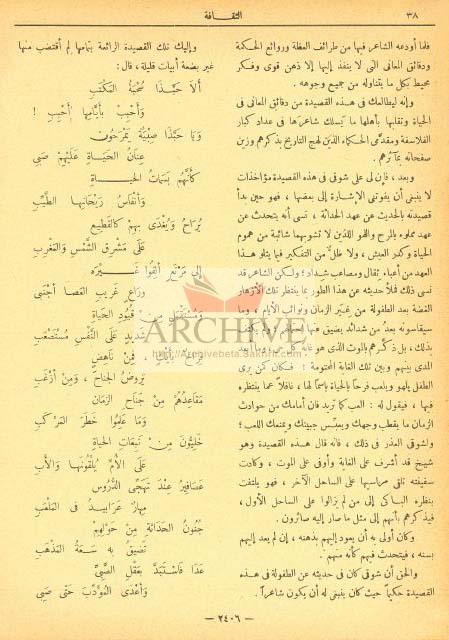 ٣٨
الثقافة
فلما أودعه الشاعر فيها من طرائف العظة وروائع الحكمة
ودقائق المعانى التى لا ينفذ إليها إلا ذهن قوى وفكر
محيط بكل ما يتناوله من جميع وجوهه .
وإنه ليطالعك فى هذه القصيدة من دقائق المعانى فى
الحياة وتقلبها بأهلها ما يسلك شاعرها فى عداد كبار
الفلاسفة ومقدمى الحكماء الذين لهج التاريخ بذكرهم وزين
صفحاته بمآثرهم .
وبعد ، فإن لى على شوقى فى هذه القصيدة مؤاخذات
لا ينبغى أن يفوتنى الإشارة إلى بعضها ، فهو حين بدأ
قصيدته بالحديث عن عهد الحداثة ، نسى أنه يتحدث عن
عهد مملوء بالمرح واللهو اللذين لا تشوبهما شائبة من هموم
الحياة وكدر العيش ، ولا ظل من التفكير فيما يتلو هذا
العهد من أعباء ثقال ومصاعب شداد ؛ ولكن الشاعر قد
نسى ذلك فملأ حديثه عن هذا الطور بما ينتظر تلك الأزهار
الغضة بعد الطفولة من غير الزمان ونوائب الأيام ، وما
سيقاسونه بعد من شدائد يضيق فيها
بذلك ، بل ذكرهم بالموت الذى هو غاية كل حى وما أبعد
المدى بينهم وبين تلك الغاية المحتومة ! فكان كمن يرى
الطفل يلهو ويلعب فرحاً بالحياة باسماً لها ، غافلا عما ينتظره
فيها ، فيقول له : العب كما تريد فان أمامك من حوادث
الزمان ما يقطب وجهك ويعبّس جبينك وعنمك اللعب ؛
ولشوقى العذر فى ذلك ، فانه قال هذه القصيدة وهو
شيخ قد أشرف على الغاية وأوفى على الموت ، وكادت
سفينته تلقى مراسيها على الساحل الآخر ، فهو يلتفت
بنظره الباكى إلى من لم يزالوا على الساحل الأول ،
فيذكرهم بأنهم إلى مثل ما صار إليه صائرون .
وكان أولى به أن يعود إليهم بذهنه ، إن لم يعد إليهم
بسنه ، فيتحدث فيهم كأنه منهم .
والحق أن شوقى كان فى حديثه عن الطفولة فى هذه
القصيدة حكيماً حيث كان ينبغى له أن يكون شاعراً .
وإليك تلك القصيدة الرائعة بتمامها لم أقتضب منها
غير بضعة أبيات قليلة ، قال :
أَلاَ حَبَّذَا صُحْبَةُ المَكْتَبِ
وَأَحْبِبْ بِأَيَّامِهَا أَحْبِبِ !
وَيَا حَبَّذَا صِبْيَةٌ يَمْرَحُونَ
عِنَانُ الحَيَاةِ عَلَيْهِمْ صَبِى
كَأَنَّهُمُ بَسَمَاتُ الحياةِ
وَأَنْفَاسُ رَيْحَانِها الطَّيِّبِ
يُرَاحُ وَيُغْدَى بِهِمْ كالقَطِيعِ
عَلَى مَشْرِقِ الشَّمْسِ وَالمَغْرِبِ
إلى مَرْتَعٍ أَلِفُوا غَيْرَهُ
وراعٍ غَرِيبِ العَصا أَجْنَبِى
ومستقبَلٍ من قُيُودِ الحَيَاةِ
شَدِيدٍ عَلَى النَّفْسِ مُسْتَصْعَبِ
فِراخٌ بأَيْكٍ فَمِنْ نَاهِضٍ
يَرُوضُ الجَنَاحَ ، وَمِنْ أَزْغَبِ
مَقَاعِدُهُمْ مِنْ جَنَاحِ الزَّمَانِ
وَمَا عَلِمُوا خَطَرَ المَرْكَبِ
خَلِيُّونَ مِنْ تَبِعَاتِ الحَياةِ
عَلَى الأُمِّ يُلْقُونَهَا وَالأَبِ
عَصَافِيرُ عِنْدَ تَهَجِّى الدُّرُوسِ
مِهَارٌ عَرَابِيدُ فى المَلْعَبِ
جُنُونُ الحَدَاثَةِ مِنْ حَوْلِهِمْ
تَضِيقُ بِهِ سَعَةُ المَذْهَبِ
عَدَا فَاسْتَبَدَّ بِعَقْلِ الصَّبِىِّ
وَأَعْدَى المُؤَدِّبَ حَتَّى صَبِى
ARCHIVE
http://Archivebeta.Sakhrit.com
— ٢٤٠٦ —